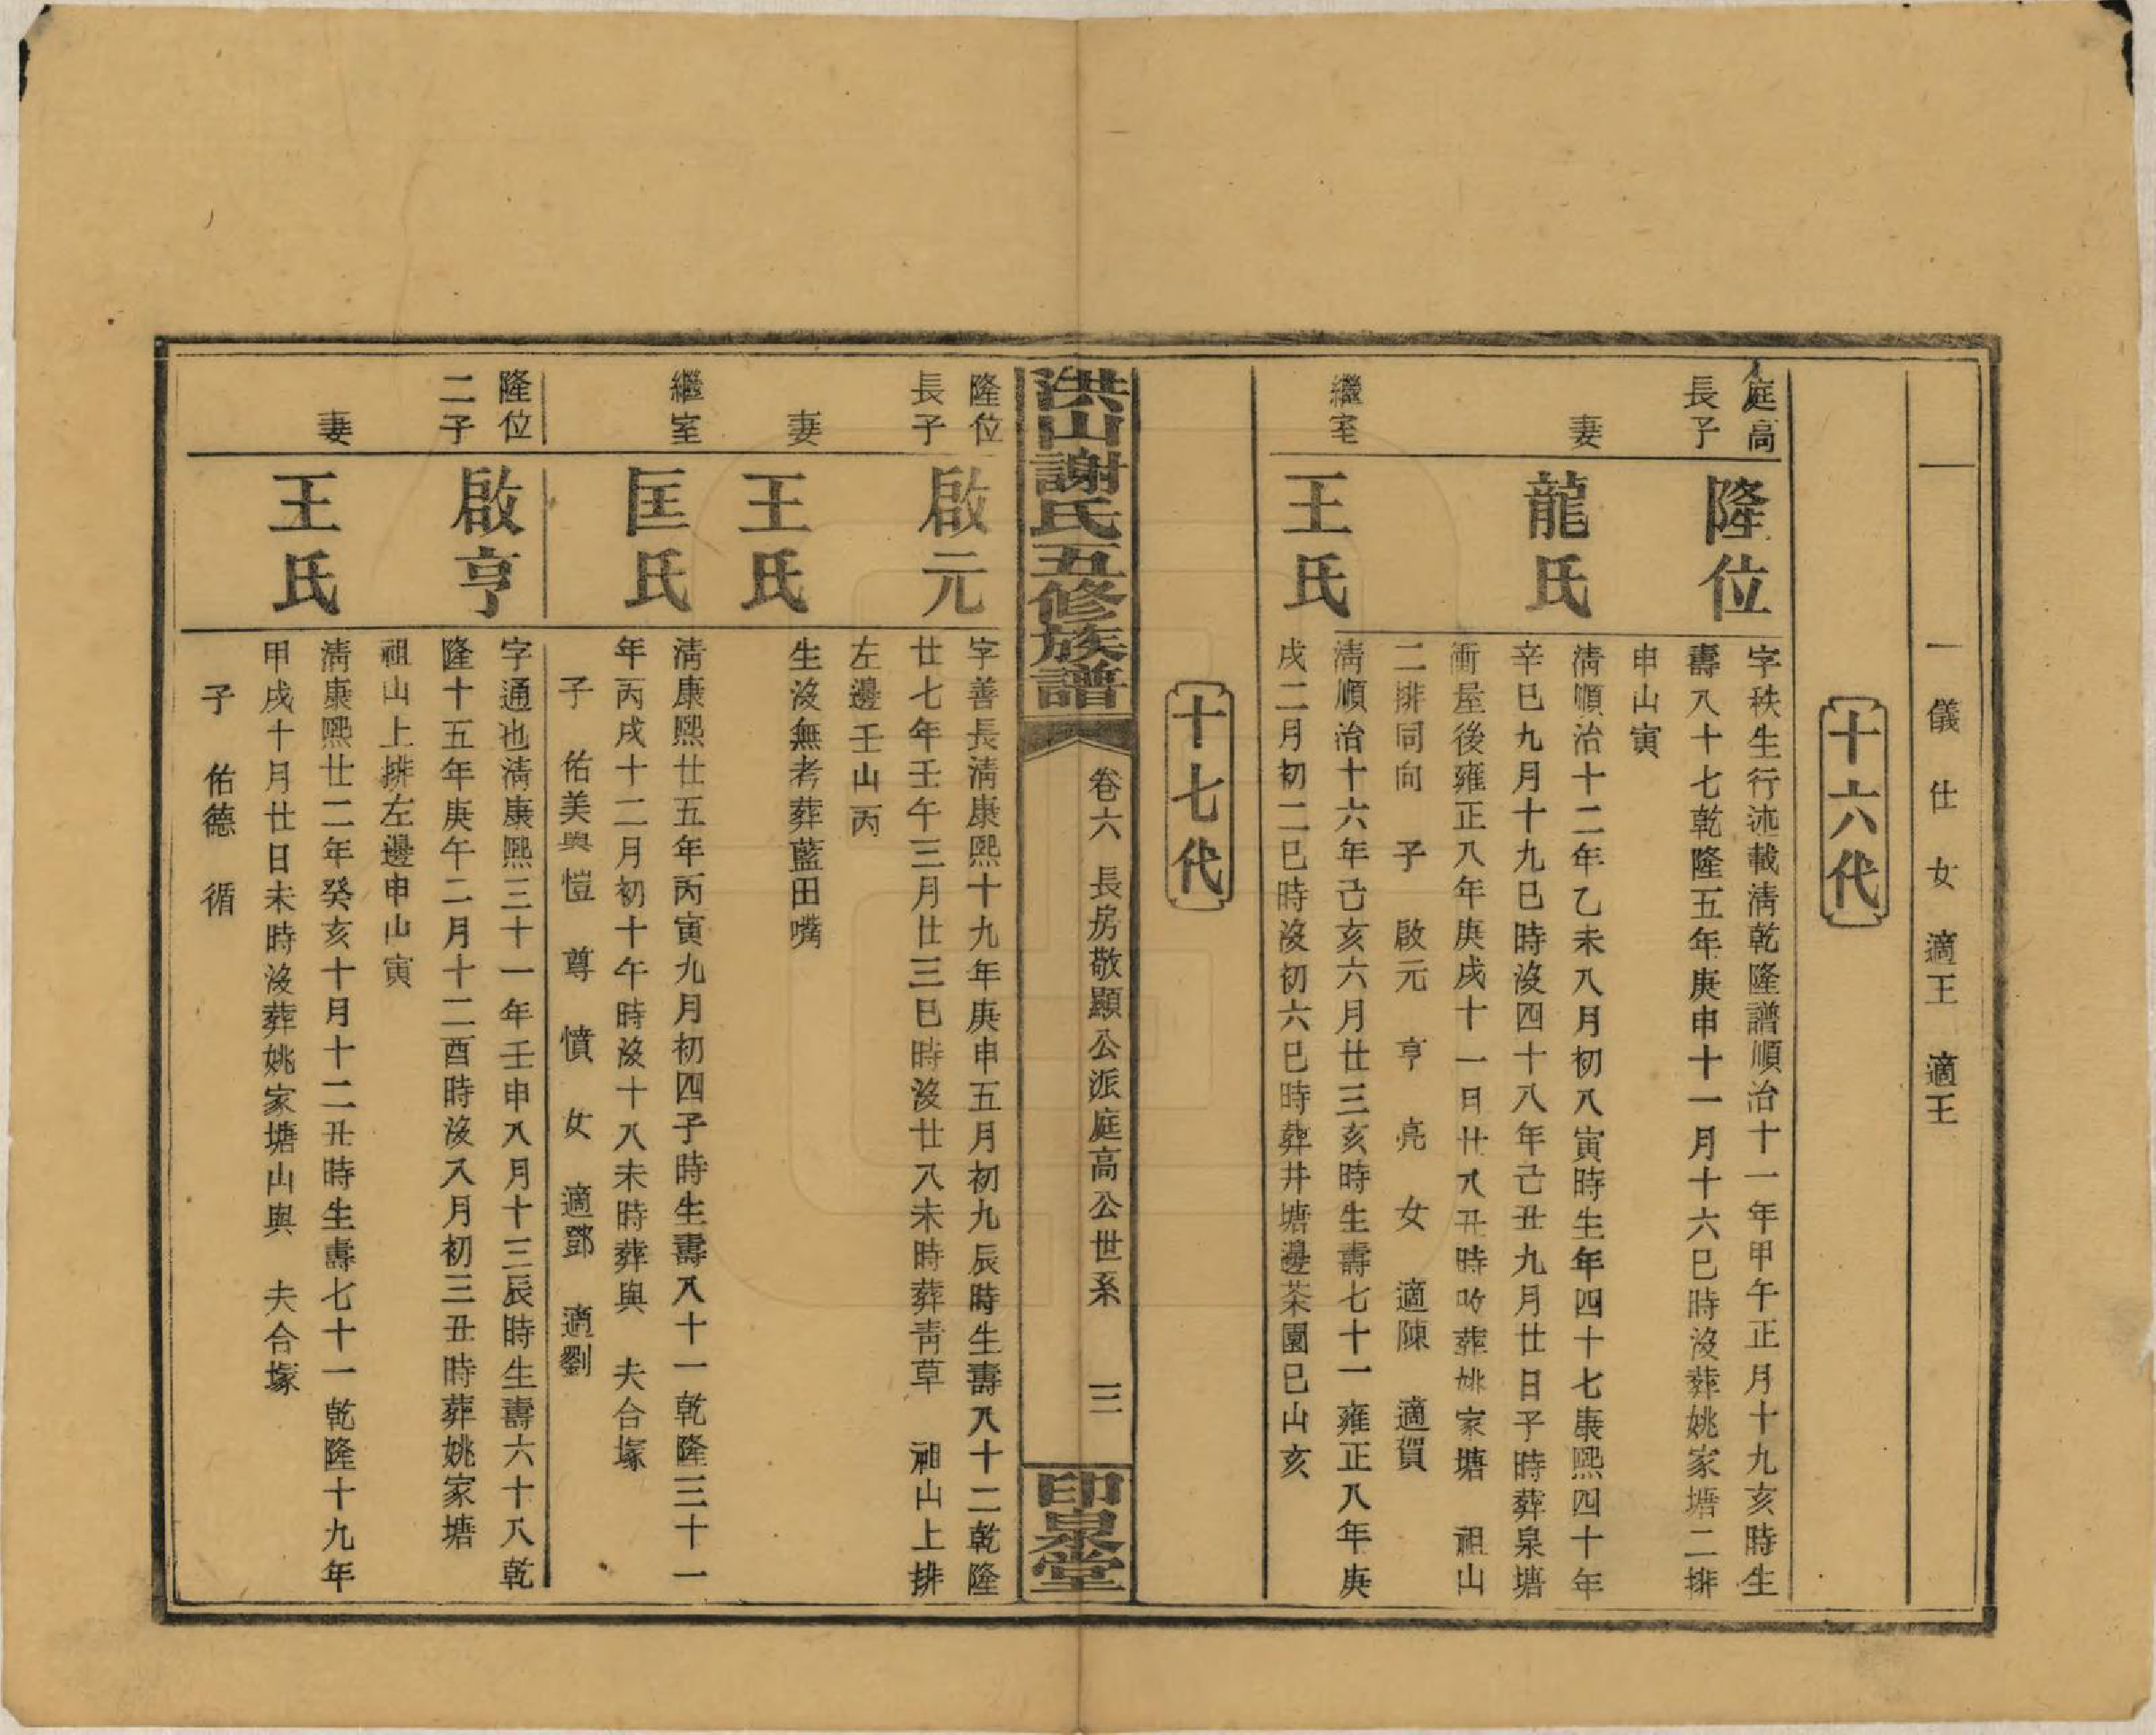 一儀　仕　女　適王　適王
十六代
庭高
長子
隆位
字秩生行述載清乾隆譜順治十一年甲午正月十九亥時生
壽八十七乾隆五年庚申十一月十六巳時沒葬姚家塘二排
申山寅
妻
龍氏
清順治十二年乙未八月初八寅時生年四十七康熙四十年
辛巳九月十九巳時沒四十八年己丑九月廿日子時葬泉塘
衝屋後雍正八年庚戌十一日廿八丑時改葬姚家塘　祖山
二排同向　子　啟元　亨　亮　女　適陳　適賀
繼室
王氏
清順治十六年己亥六月廿三亥時生壽七十一雍正八年庚
戌二月初二巳時沒初六巳時葬井塘邊茶園巳山亥
十七代
洪山謝氏五修族譜
卷六　長房敬顯公派庭高公世系　三
印泉堂
隆位
長子
啟元
字善長清康熙十九年庚申五月初九辰時生壽八十二乾隆
廿七年壬午三月廿三巳時沒廿八未時葬靑草　祖山上排
左邊壬山丙
妻
王氏
生沒無考葬藍田嘴
繼室
匡氏
清康熙廿五年丙寅九月初四子時生壽八十一乾隆三十一
年丙戌十二月初十午時沒十八未時葬與　夫合塚
子　佑美與愷　尊　憤　女　適鄧　適劉
隆位
二子
啟亨
字通也清康熙三十一年壬申八月十三辰時生壽六十八乾
隆十五年庚午二月十二酉時沒八月初三丑時葬姚家塘
祖山上排左邊申山寅
妻
王氏
清康熙廿二年癸亥十月十二丑時生壽七十一乾隆十九年
甲戌十月廿日未時沒葬姚家塘山與　夫合塚
子　佑德　循